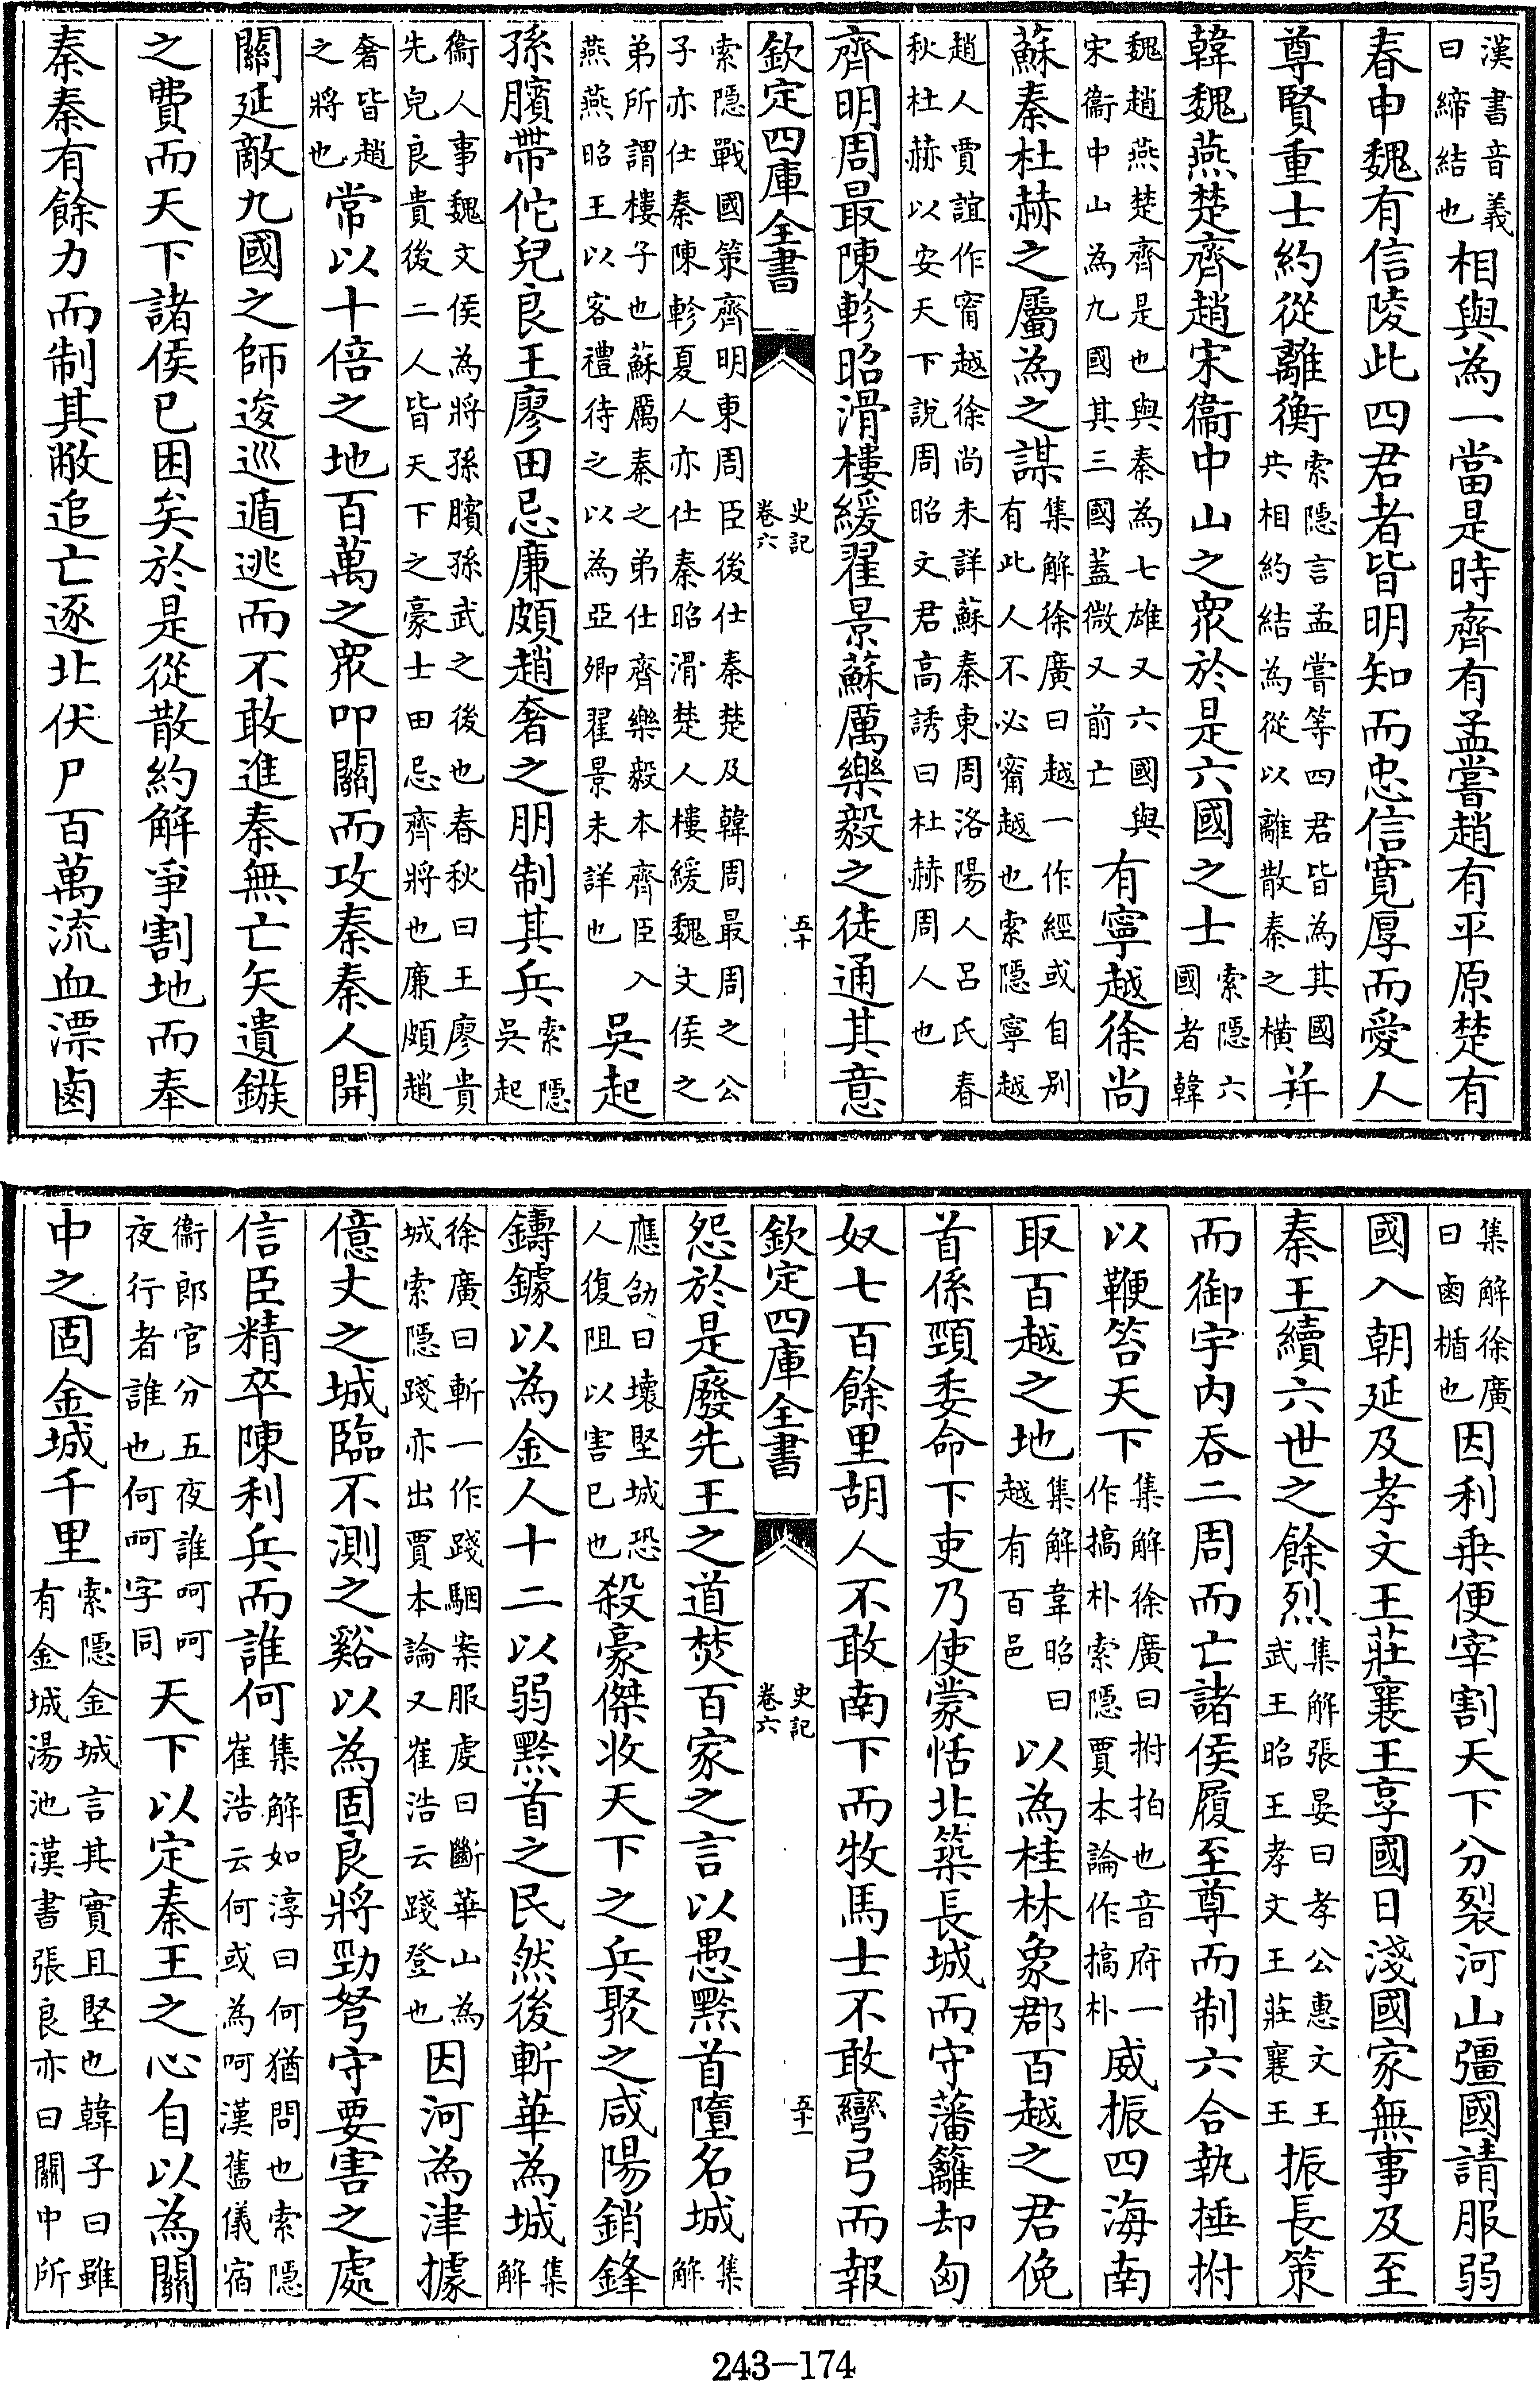 漢書音義曰締結也相與為一當是時齊有孟嘗趙有平原楚有
春申魏有信陵此四君者皆明知而忠信寛厚而愛人
尊賢重士約從離衡索隠言孟嘗等四君皆為其國共相約結為從以離散秦之横并
韓魏燕楚齊趙宋衞中山之衆於是六國之士索隠六國者韓
魏趙燕楚齊是也與秦為七雄又六國與宋衞中山為九國其三國蓋微又前亡有寧越徐尚
蘇秦杜赫之屬為之謀集解徐廣曰越一作經或自别有此人不必甯越也索隠寧越
趙人賈誼作甯越徐尚未詳蘇秦東周洛陽人吕氏春秋杜赫以安天下說周昭文君高誘曰杜赫周人也
齊明周最陳軫昭滑樓緩翟景蘇厲樂毅之徒通其意
欽定四庫全書 史記卷六 五十
索隠戰國策齊明東周臣後仕秦楚及韓周最周之公子亦仕秦陳軫夏人亦仕秦昭滑楚人樓緩魏文侯之
弟所謂樓子也蘇厲秦之弟仕齊樂毅本齊臣入燕燕昭王以客禮待之以為亞卿翟景未詳也吳起
孫臏帶佗兒良王廖田忌廉頗趙奢之朋制其兵索隠吳起
衞人事魏文侯為將孫臏孫武之後也春秋曰王廖貴先兒良貴後二人皆天下之豪士田忌齊將也廉頗趙
奢皆趙之將也常以十倍之地百萬之衆叩關而攻秦秦人開
關延敵九國之師逡巡遁逃而不敢進秦無亡矢遺鏃
之費而天下諸侯已困矣於是從散約解爭割地而奉
秦秦有餘力而制其敝追亡逐北伏尸百萬流血漂鹵
集解徐廣曰鹵楯也因利乗便宰割天下分裂河山彊國請服弱
國入朝延及孝文王莊襄王享國日淺國家無事及至
秦王續六世之餘烈集解張晏曰孝公惠文王武王昭王孝文王莊襄王振長策
而御宇内吞二周而亡諸侯履至尊而制六合執捶拊
以鞭笞天下集解徐廣曰拊拍也音府一作搞朴索隠賈本論作搞朴威振四海南
取百越之地集解韋昭曰越有百邑以為桂林象郡百越之君俛
首係頸委命下吏乃使蒙恬北築長城而守藩籬却匈
奴七百餘里胡人不敢南下而牧馬士不敢彎弓而報
欽定四庫全書 史記卷六 五十一
怨於是廢先王之道焚百家之言以愚黔首墮名城集解
應劭曰壊堅城恐人復阻以害已也殺豪傑收天下之兵聚之咸陽銷鋒
鑄鐻以為金人十二以弱黔首之民然後斬華為城集解
徐廣曰斬一作踐駰案服䖍曰斷華山為城索隠踐亦出賈本論又崔浩云踐登也因河為津據
億丈之城臨不測之谿以為固良將勁弩守要害之處
信臣精卒陳利兵而誰何集解如淳曰何猶問也索隠崔浩云何或為呵漢舊儀宿
衞郎官分五夜誰呵呵夜行者誰也何呵字同天下以定秦王之心自以為關
中之固金城千里索隠金城言其實且堅也韓子曰雖有金城湯池漢書張良亦曰關中所
243-174